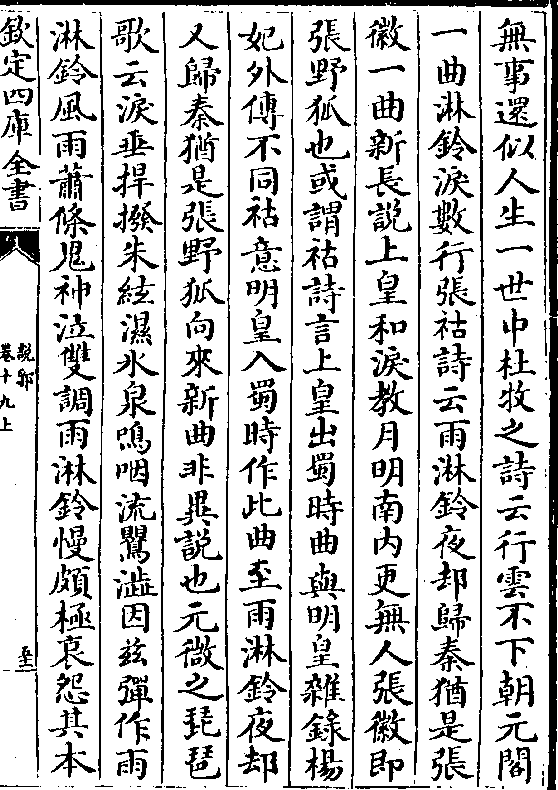 無事還似人生一世中杜牧之詩云行雲不下朝元閣
一曲淋鈴淚數行張祜詩云雨淋鈴夜却歸秦猶是張
徽一曲新長説上皇和淚教月明南内更無人張徽即
張野狐也或謂祜詩言上皇出蜀時曲與明皇雜錄楊
妃外傳不同祜意明皇入蜀時作此曲至雨淋鈴夜却
又歸秦猶是張野狐向來新曲非異説也元微之琵琶
歌云淚垂捍撥朱絃濕氷泉嗚咽流鶯澁因兹彈作雨
淋鈴風雨蕭條鬼神泣雙調雨淋鈴慢頗極哀怨其本
欽定四庫全書
説郛
卷十九上